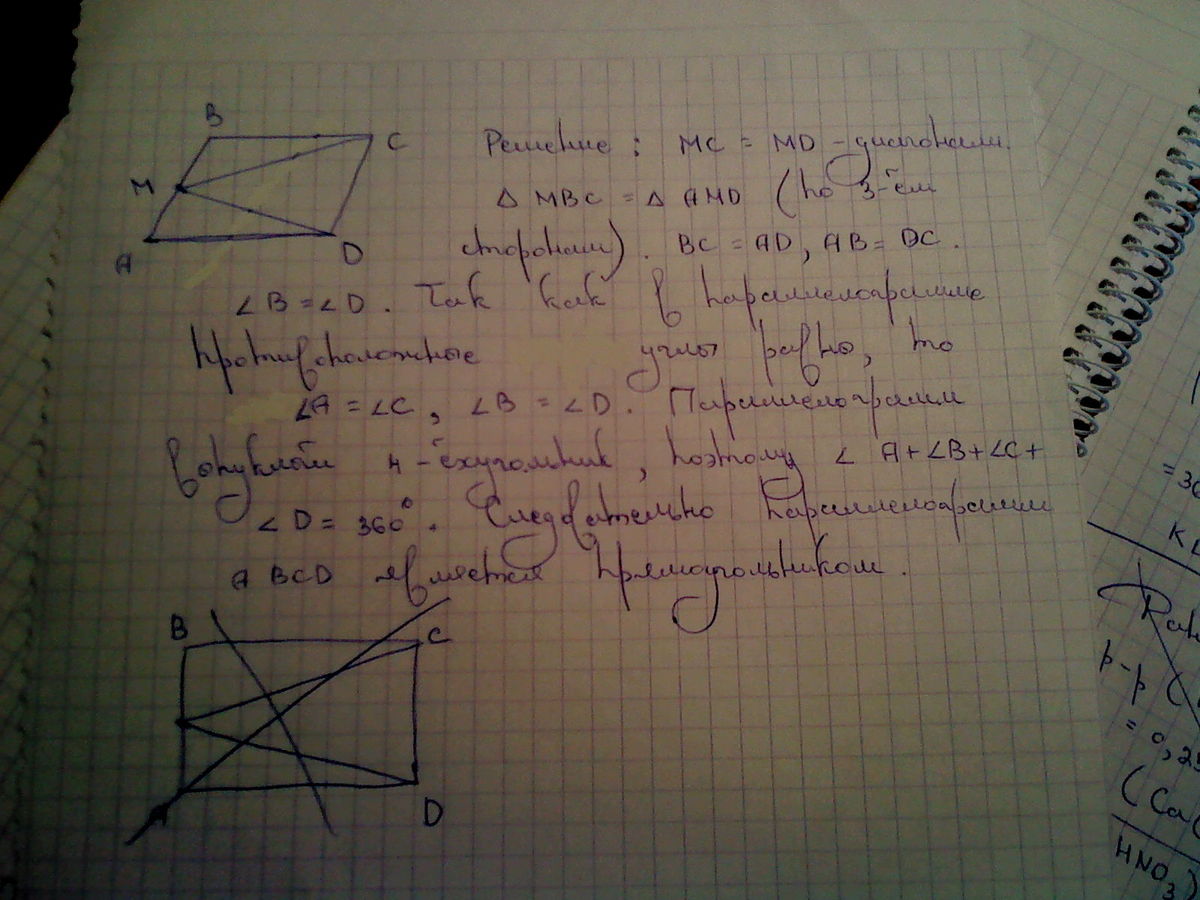 B
C
M
A
D
Решение : MC = MD - диагонали.
Δ MBC = Δ AMD (по 3-ём
сторонам). BC = AD, AB = DC.
∠B = ∠D. Так как в параллелограмме
противоположные углы равны, то
∠A = ∠C, ∠B = ∠D. Параллелограмм
выпуклый 4-ёхугольник, поэтому ∠ A+∠B+∠C+
∠D = 360°. Следовательно параллелограмм
ABCD является прямоугольником.
B
C
D
= 30
р-р (
= 0,25
(Ca
HNO3)